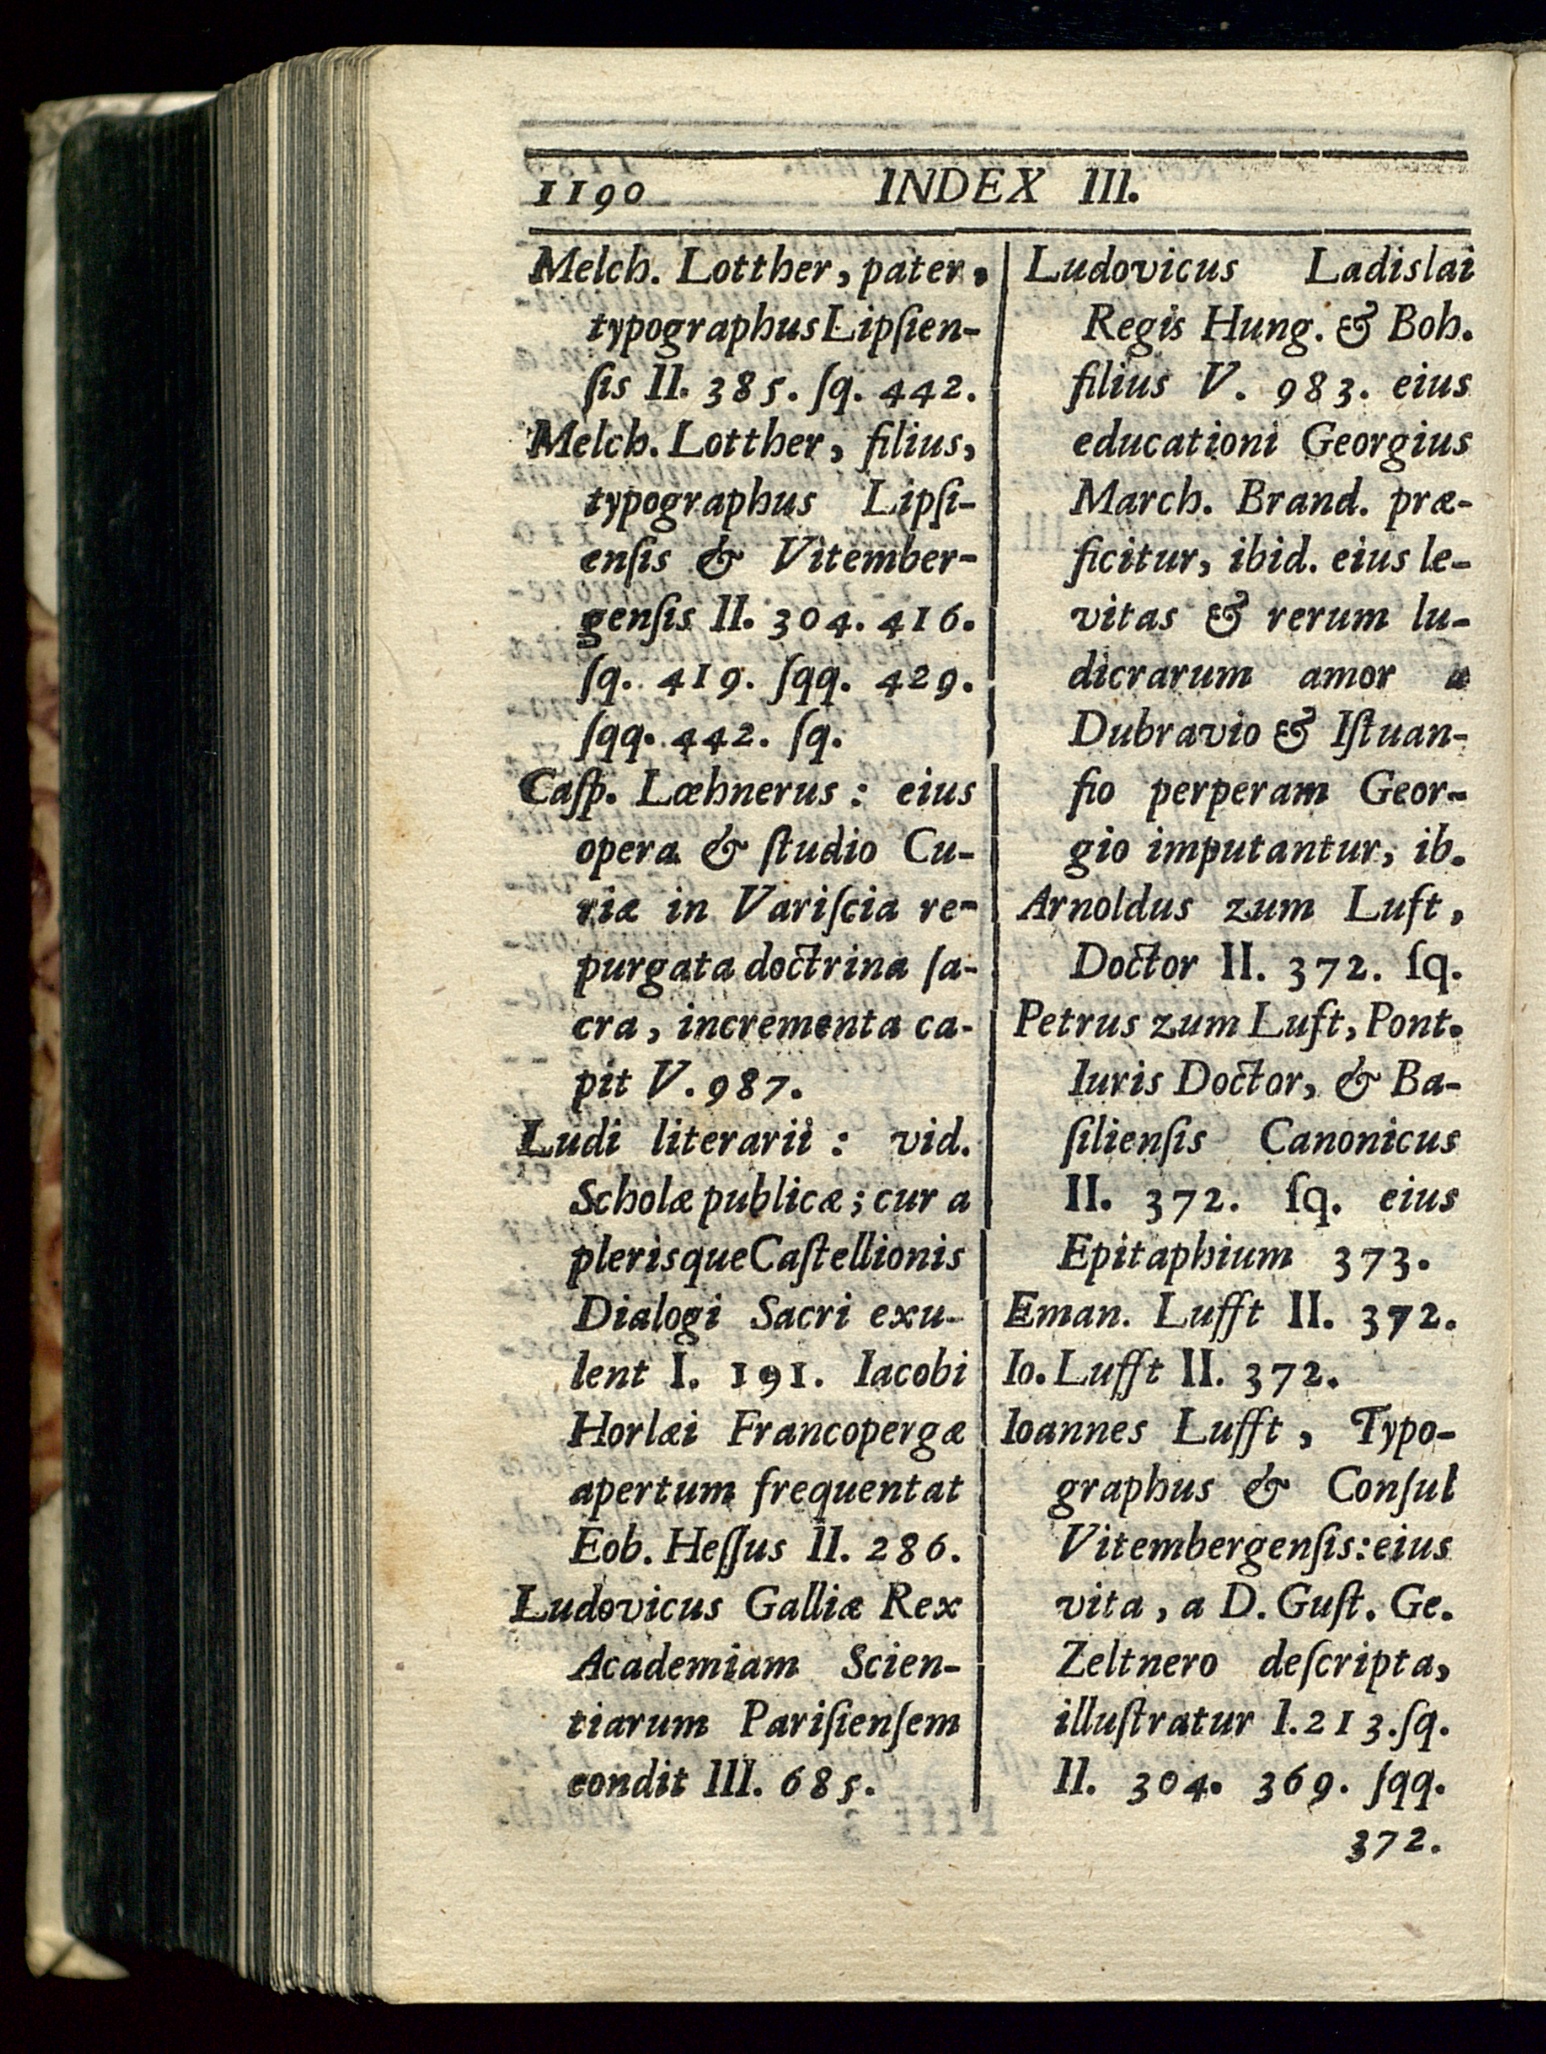 1190 INDEX III.
Melch. Lotther, pater,
typographus Lipſien-
ſis II. 385. ſq. 442.
Melch. Lotther, filius,
typographus Lipſi-
enſis & Vitember-
genſis II. 304. 416.
ſq. 419. ſqq. 429.
ſqq. 442. ſq.
Caſp. Lœhnerus: eius
opera & ſtudio Cu-
riæ in Variſcia re-
purgata doctrina ſa-
cra, incrementa ca-
pit V. 987.
Ludi literarii: vid.
Scholæ publicæ; cur a
plerisque Caſtellionis
Dialogi Sacri exu-
lent I. 191. Iacobi
Horlæi Francopergæ
apertum frequentat
Eob. Heſſus II. 286.
Ludovicus Galliæ Rex
Academiam Scien-
tiarum Pariſienſem
condit III. 685.
Ludovicus Ladislai
Regis Hung. & Boh.
filius V. 983. eius
educationi Georgius
March. Brand. præ-
ficitur, ibid. eius le-
vitas & rerum lu-
dicrarum amor a
Dubravio & Iſtuan-
fio perperam Geor-
gio imputantur, ib.
Arnoldus zum Luft,
Doctor II. 372. ſq.
Petrus zum Luft, Pont.
Iuris Doctor, & Ba-
ſilienſis Canonicus
II. 372. ſq. eius
Epitaphium 373.
Eman. Lufft II. 372.
Io. Lufft II. 372.
Ioannes Lufft, Typo-
graphus & Conſul
Vitembergenſis: eius
vita, a D. Guſt. Ge.
Zeltnero deſcripta,
illuſtratur I. 213. ſq.
II. 304. 369. ſqq.
372.